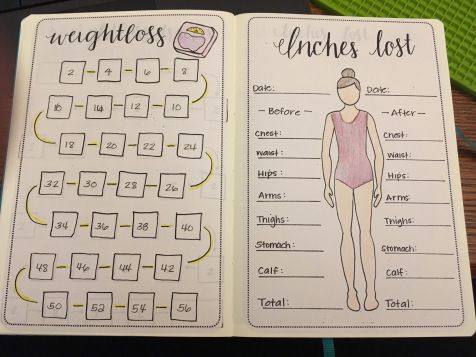 weightloss
2 4 6 8
16 14 12 10
18 20 22 24
32 30 28 26
34 36 38 40
48 46 44 42
50 52 54 56
Inches lost
Date:
- Before -
Chest:
Waist:
Hips:
Arms:
Thighs:
Stomach:
Calf:
Total:
Date:
- After -
Chest:
Waist:
Hips:
Arms:
Thighs:
Stomach:
Calf:
Total: